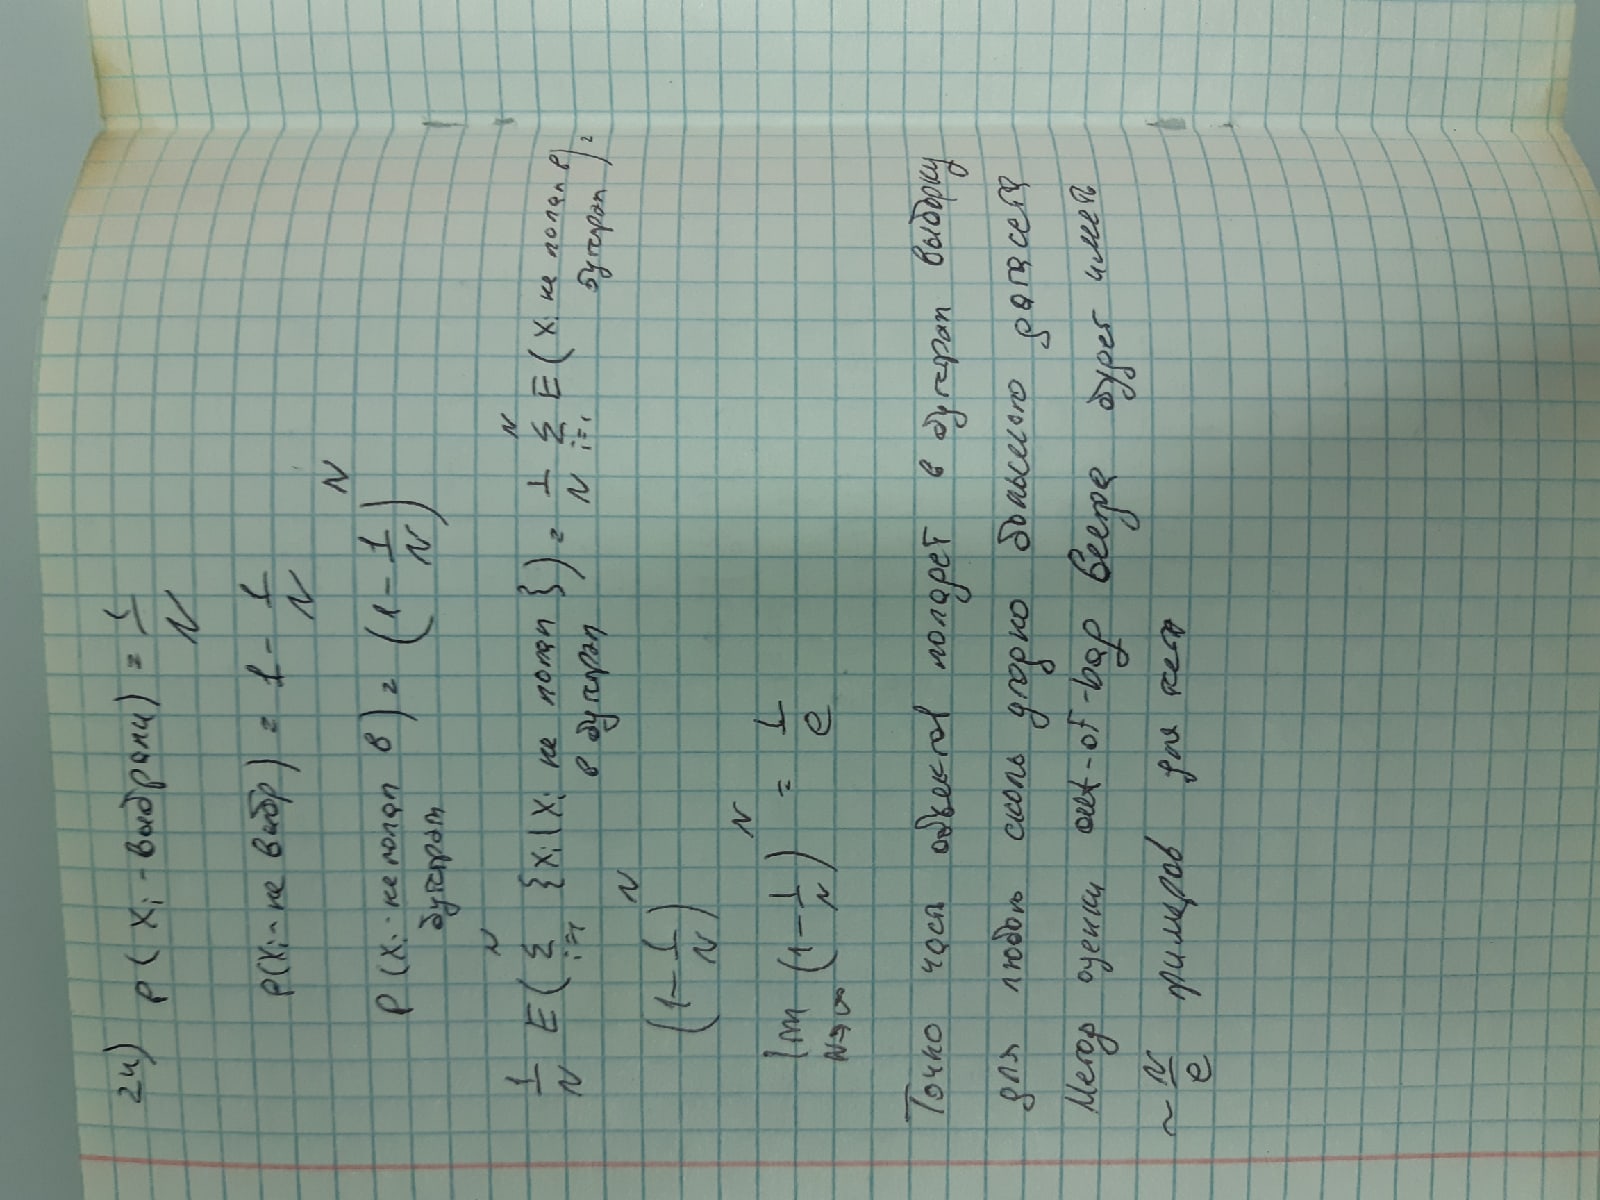 24) P(Xi - выбрани) = 1/N
P(Xi - не выбр) = 1 - 1/N
P(Xi - не попал в бутстрап) = (1 - 1/N)^N
1/N E(∑_{i=1}^{N} {Xi | Xi не попал в бутстрап}) = 1/N ∑_{i=1}^{N} E(Xi не попал в бутстрап) =
(1 - 1/N)^N
lim_{N→∞} (1 - 1/N)^N = 1/e
Точно часть объектов попадет в бутстрап выборку
для любого сколь угодно большого датасета
Метод оценки out-of-bag всегда будет иметь
~ N/e примеров для теста